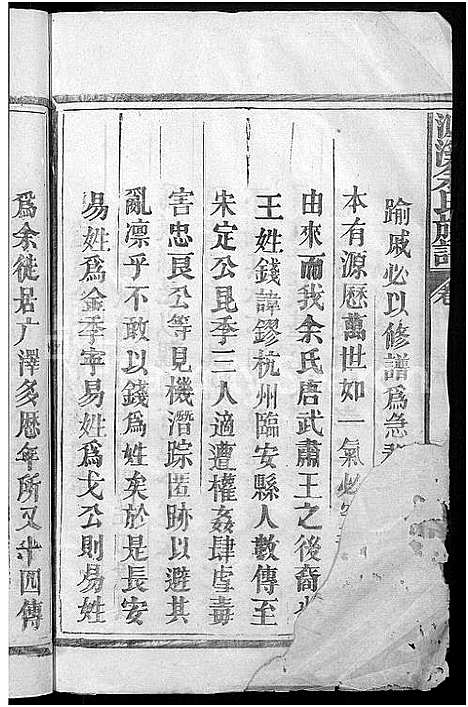 余氏族譜 卷
踰戚必以修譜為急
本有源歷萬世如一氣必
由來而我余氏唐武肅王之後裔
王姓錢諱鏐杭州臨安縣人數傳至
宋定公昆季三人適遭權奸肆虐毒
害忠良公等見機潛踪匿跡以避其
亂凛乎不敢以錢為姓矣於是長安
易姓為金季寧易姓為戈公則易姓
為余徙居广澤多歷年所又十四傳